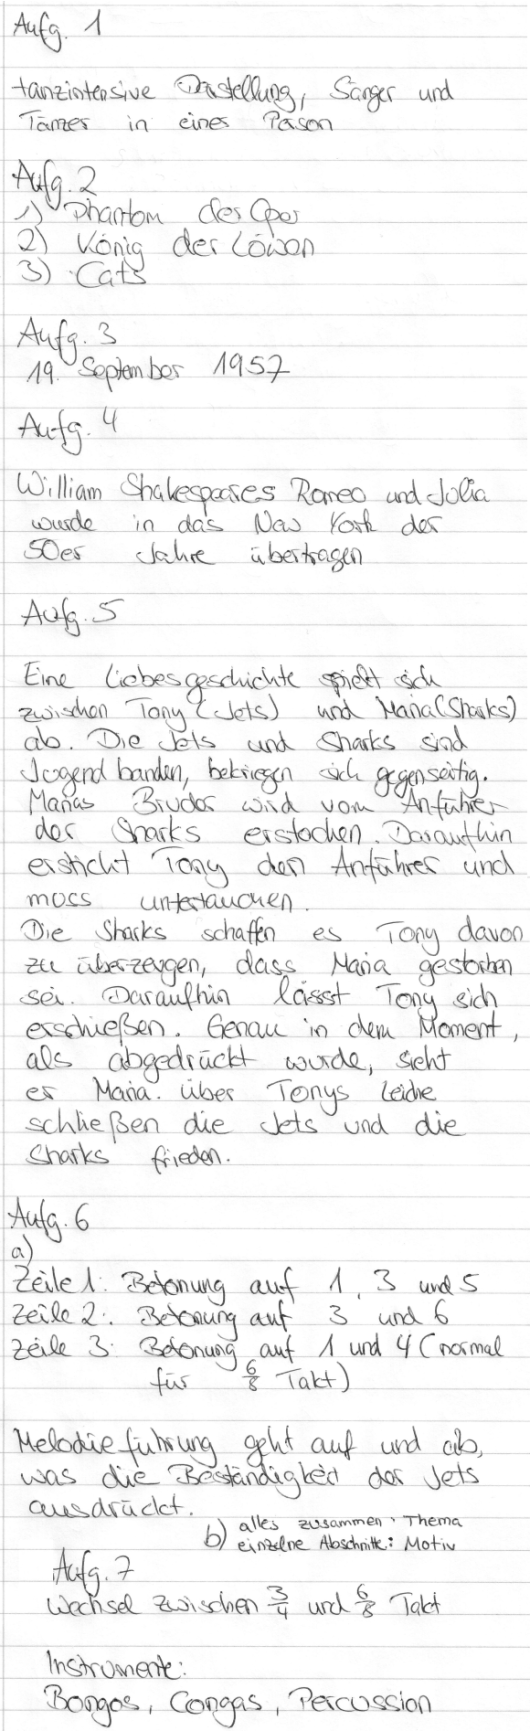 Aufg. 1
tanzintensive Darstellung, Sänger und
Tänzer in einer Person
Aufg. 2
1) Phantom der Oper
2) König der Löwen
3) Cats
Aufg. 3
19. September 1957
Aufg. 4
William Shakespeares Romeo und Julia
wurde in das New York der
50er Jahre übertragen
Aufg. 5
Eine Liebesgeschichte spielt sich
zwischen Tony (Jets) und Maria (Sharks)
ab. Die Jets und Sharks sind
Jugendbanden, bekriegen sich gegenseitig.
Marias Bruder wird vom Anführer
der Sharks erstochen. Daraufhin
ersticht Tony den Anführer und
muss untertauchen.
Die Sharks schaffen es Tony davon
zu überzeugen, dass Maria gestorben
sei. Daraufhin lässt Tony sich
erschießen. Genau in dem Moment,
als abgedrückt wurde, sieht
er Maria. über Tonys Leiche
schließen die Jets und die
Sharks frieden.
Aufg. 6
a)
Zeile 1: Betonung auf 1, 3 und 5
Zeile 2: Betonung auf 3 und 6
Zeile 3: Betonung auf 1 und 4 (normal
für 6/8 Takt)
Melodieführung geht auf und ab,
was die Beständigkeit der Jets
ausdrückt.
b) alles zusammen: Thema
einzelne Abschnitte: Motiv
Aufg. 7
Wechsel zwischen 3/4 und 6/8 Takt
Instrumente:
Bongos, Congas, Percussion